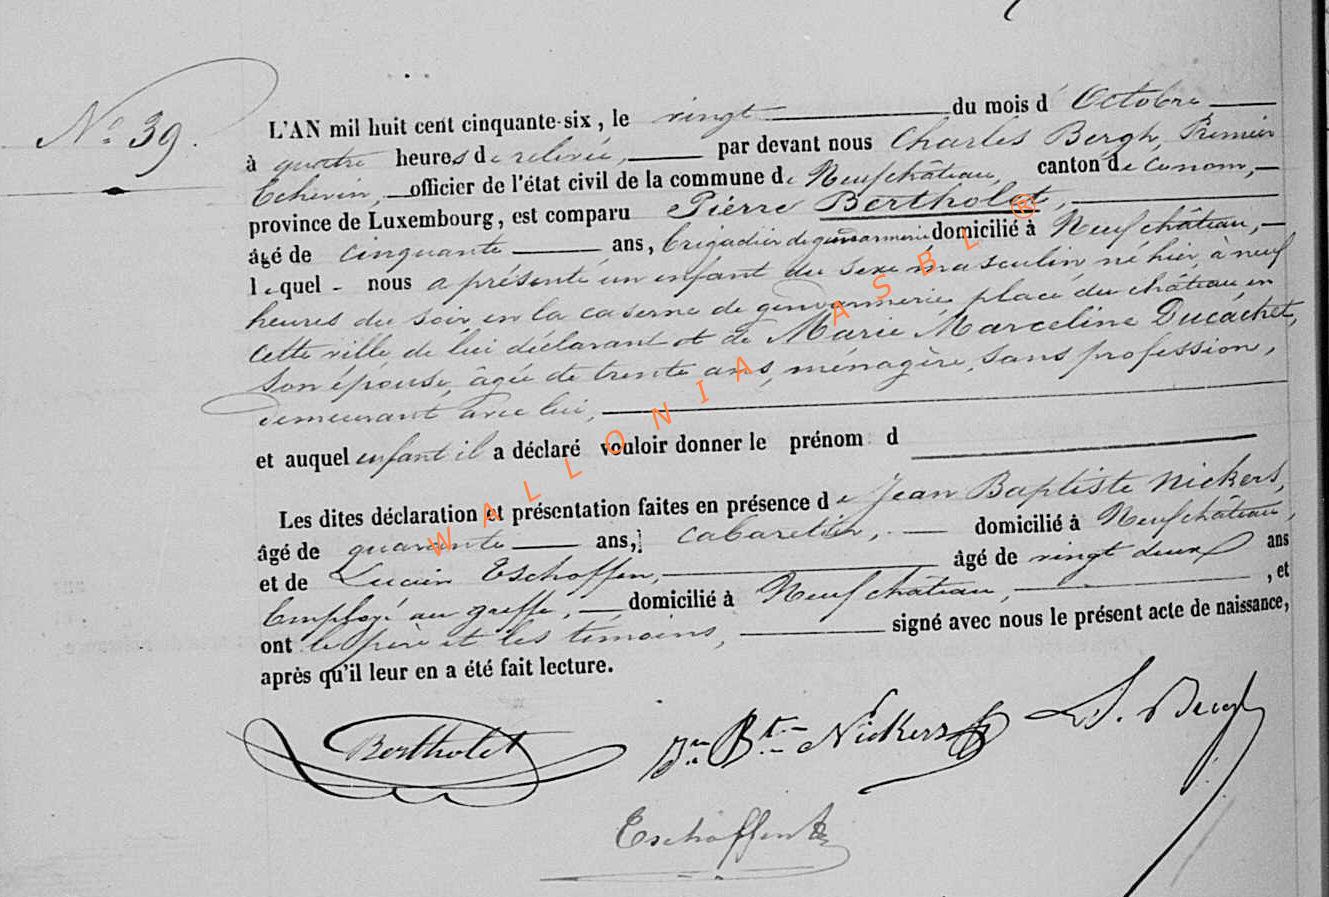 N° 39.
L'AN mil huit cent cinquante-six, le vingt du mois d'Octobre
à quatre heures de relevée, par devant nous Charles Bergh, Premier
Echevin, officier de l'état civil de la commune de Neufchâteau, canton de ce nom,
province de Luxembourg, est comparu Pierre Bertholet,
âgé de cinquante ans, brigadier de gendarmerie domicilié à Neufchâteau,
lequel nous a présenté un enfant du sexe masculin né hier, à neuf
heures du soir, en la caserne de gendarmerie, place du château, en
cette ville, de lui déclarant et de Marie Marceline Ducachet,
son épouse, âgée de trente ans, ménagère, sans profession,
demeurant avec lui,
et auquel enfant il a déclaré vouloir donner le prénom d
Les dites déclaration et présentation faites en présence de Jean Baptiste Nickers,
âgé de quarante ans, cabaretier, domicilié à Neufchâteau,
et de Lucien Eschoffen, âgé de vingt deux ans
Employé au greffe, domicilié à Neufchâteau, , et
ont le père et les témoins, signé avec nous le présent acte de naissance,
après qu'il leur en a été fait lecture.
Bertholet Jn Bte Nickers
Eschoffen
WALLONIA ASBL ®